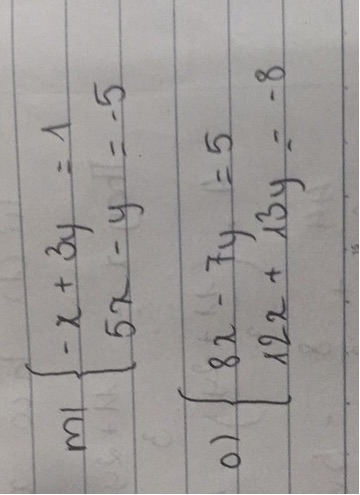 m) { -x + 3y = 1
5x - y = -5
o) { 8x - 7y = 5
12x + 13y = -8